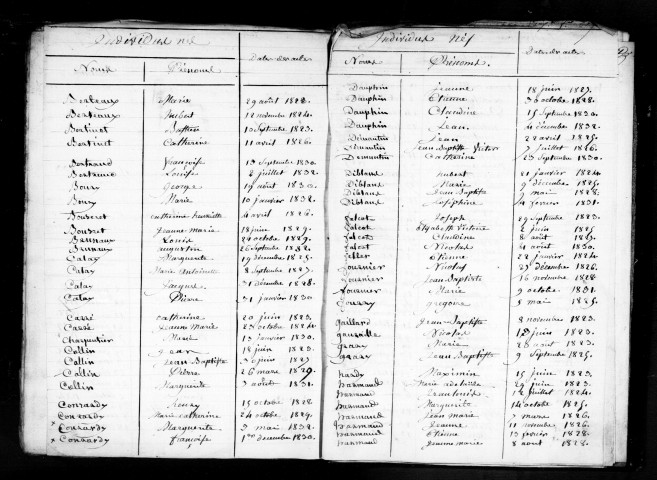 Individus nés
Dates des actes
Noms Prénoms
Marie 29 août 1828.
Berteaux hubert 12 novembre 1824.
Bertinet 10 Septembre 1823.
Bertinet Catherine 11 avril 1826.
Bertrand françoise 13 Septembre 1830.
Bertrand Louise 2 juillet 1832.
Boury George 19 août 1830.
Boury Marie 10 janvier 1832.
Bousset catherine henriette 4 avril 1826.
Bousset jeanne marie 18 juin 1829.
Louis 24 octobre 1829.
augustin 26 Septembre 1832.
Calay Marguerite 19 Décembre 1825.
Calay Marie Antoinette 8 Septembre 1827.
Calay Jacques 31 Décembre 1828.
Calay Pierre 31 janvier 1830
Cassé catherine 20 juin 1823.
Cassé Jeanne Marie 25 octobre 1824.
Charpentier Marie 13 janvier 1830.
Collin jean 18 juin 1823.
Collin Jean Baptiste 30 juin 1827.
Collin Pierre 26 mars 1829.
Collin Marguerite 3 août 1831.
Conrardy henry 15 octobre 1828
Conrardy Marie catherine 24 octobre 1829.
x Conrardy Marguerite 3 mai 1832.
x Conrardy françoise 1er décembre 1830.
Individus nés
Dates des actes
Noms Prénoms.
Dauphin jeanne 18 juin 1827.
Dauphin Etienne 30 octobre 1828.
Dauphin Claudine 15 Septembre 1830.
Dauphin Jean 4 décembre 1832.
Demantin Jean 22 avril 1825.
Demantin Jean Baptiste Victor 7 juillet 1826.
Demantin Catherine 23 Septembre 1830.
Diblanc hubert 21 janvier 1824.
Diblanc Marie 9 Décembre 1825.
Diblanc Jean Baptiste 9 mai 1828.
Diblanc Joséphine 4 février 1831.
falcot Joseph 29 Septembre 1823.
falcot Elizabeth Victoire 2 juin 1825
falcot Claudine 8 août 1827.
falcot Nicolas 21 août 1830.
Etienne 22 janvier 1824.
fournier Nicolas 25 décembre 1826.
fournier Jean Baptiste 16 novembre 1828
fournier Marie 9 octobre 1831.
grégoire 5 mai 1825.
gaillard Jean Baptiste 8 novembre 1823.
Nicolas 12 juin 1823.
Marie 28 août 1823.
Jean Baptiste 9 Septembre 1825.
hardy Maximin 15 juin 1823.
harmand Marie adelaïde 29 juin 1823.
harmand 12 juillet 1824.
harmand Marguerite 14 octobre 1825.
harmand Jean marie 3 mars 1826.
harmand Jeanne 11 novembre 1826.
harmand Etienne 13 février 1828.
harmand Jeanne marie 8 août 1828.